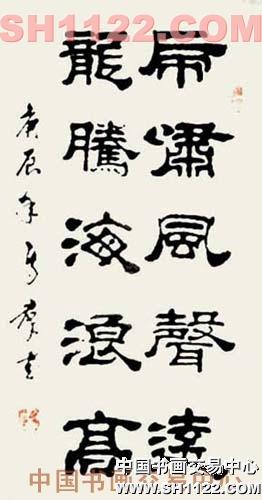 SH1122.COM
虎嘯風聲遠
龍騰海浪高
庚辰年
中国书画交易中心
SH1122.COM
中国书画交易中心